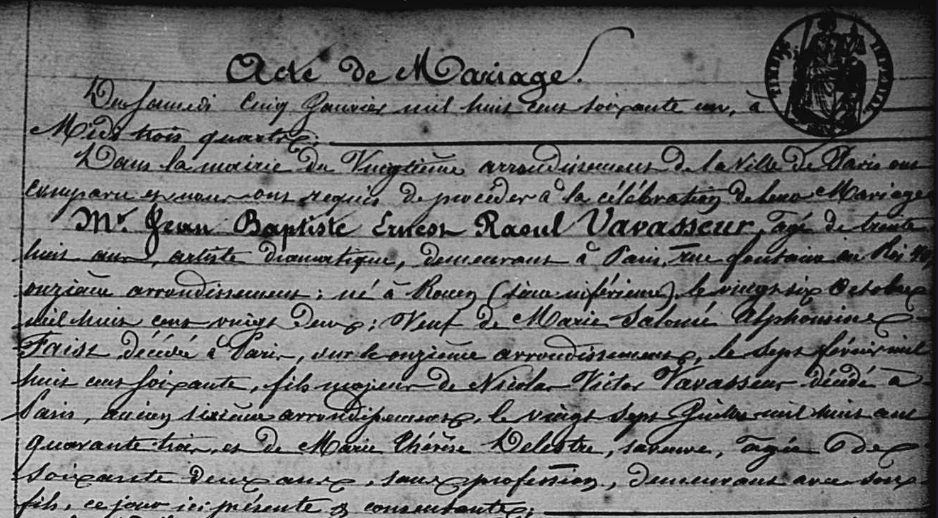 Acte de Mariage.
Du Samedi Cinq Janvier mil huit cent soixante un, à
Midi trois quarts;
Dans la mairie du Vingtième arrondissement de la Ville de Paris ont
comparu et nous ont requis de procéder à la célébration de leur Mariage
Mr. Jean Baptiste Ernest Raoul Vavasseur, âgé de trente
huit ans, artiste dramatique, demeurant à Paris, rue fontaine au Roi
onzième arrondissement; né à Rouen (Seine inférieure) le vingt six Octobre
mil huit cent vingt deux; Veuf de Marie Salomé Alphonsine
Faist décédée à Paris, sur le onzième arrondissement, le sept février mil
huit cent soixante, fils majeur de Nicolas Victor Vavasseur décédé à
Paris, ancien sixième arrondissement, le vingt sept Juillet mil huit cent
quarante trois, et de Marie Thérèse Delestre, sa veuve, âgée de
soixante deux ans, sans profession, demeurant avec son
fils, ce jour ici présente & consentante;